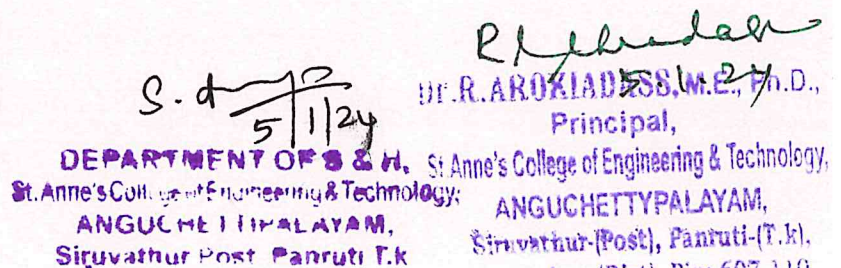 S.
5/1/24
DEPARTMENT OF S & H,
St. Anne's College of Engineering & Technology,
ANGUCHETTYPALAYAM,
Siruvathur Post, Panruti T.k
5.1.24
Dr.R.AROKIADASS, M.E., Ph.D.,
Principal,
St Anne's College of Engineering & Technology,
ANGUCHETTYPALAYAM,
Siruvathur-(Post), Panruti-(T.k),
607 110